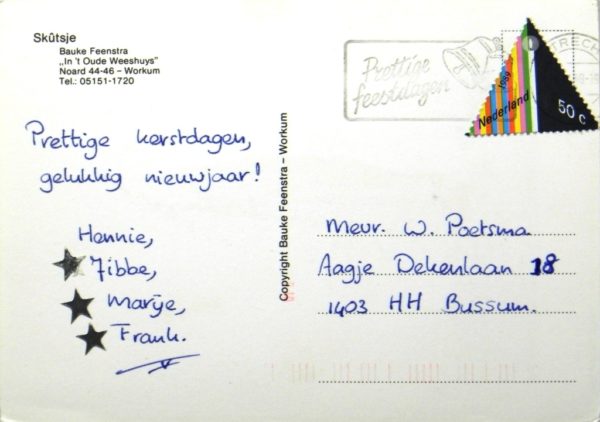 Skûtsje
Bauke Feenstra
„In 't Oude Weeshuys"
Noard 44-46 – Workum
Tel.: 05151-1720
Prettige kerstdagen,
gelukkig nieuwjaar!
Hennie,
Jibbe,
Marije,
Frank.
Copyright Bauke Feenstra – Workum
Prettige
feestdagen
UTRECH
1989
Nederland
50 c
Mevr. W. Poetsma
Aagje Dekenlaan 18
1403 HH Bussum.